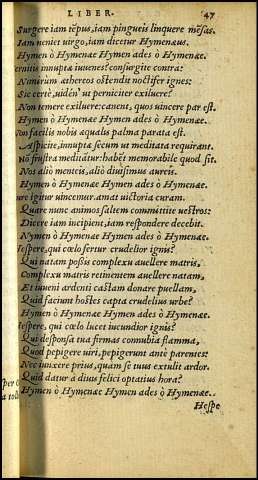 LIBER. 47
Surgere iam tēpus, iam pingueis linquere mēsas.
Iam ueniet uirgo, iam dicetur Hymenæus.
Hymen ò Hymenæe Hymen ades ò Hymenæe.
ernitis innuptæ iuuenes? consurgite contra:
Nimirum æthereos ostendit noctifer ignes:
Sic certè, uidén' ut perniciter exiluere?
Non temere exiluere: canent, quos uincere par est.
Hymen ò Hymenæe Hymen ades ò Hymenæe.
Non facilis nobis æqualis palma parata est.
Aspicite, innuptæ secum ut meditata requirant.
Nō frustra meditātur: habēt memorabile quod sit.
Nos alio menteis, alio diuisimus aureis.
Hymen ò Hymenæe Hymen ades ò Hymenæe.
ure igitur uincemur. amat uictoria curam.
Quare nunc animos saltem committite uestros:
Dicere iam incipient, iam respondere decebit.
Hymen ò Hymenæe Hymen ades ò Hymenæe.
Hespere, qui cœlo fertur crudelior ignis?
Qui natam possis complexu auellere matris,
Complexu matris retinentem auellere natam,
Et iuueni ardenti castam donare puellam,
Quid faciunt hostes capta crudelius urbe?
Hymen ò Hymenæe Hymen ades ò Hymenæe.
Hespere, qui cœlo lucet iucundior ignis?
Qui desponsa tua firmas connubia flamma,
Quod pepigere uiri, pepigerunt antè parentes:
Nec iunxere prius, quam se tuus extulit ardor.
Quid datur à diuis felici optatius hora?
Hymen ò Hymenæe Hymen ades ò Hymenæe.
Hespe